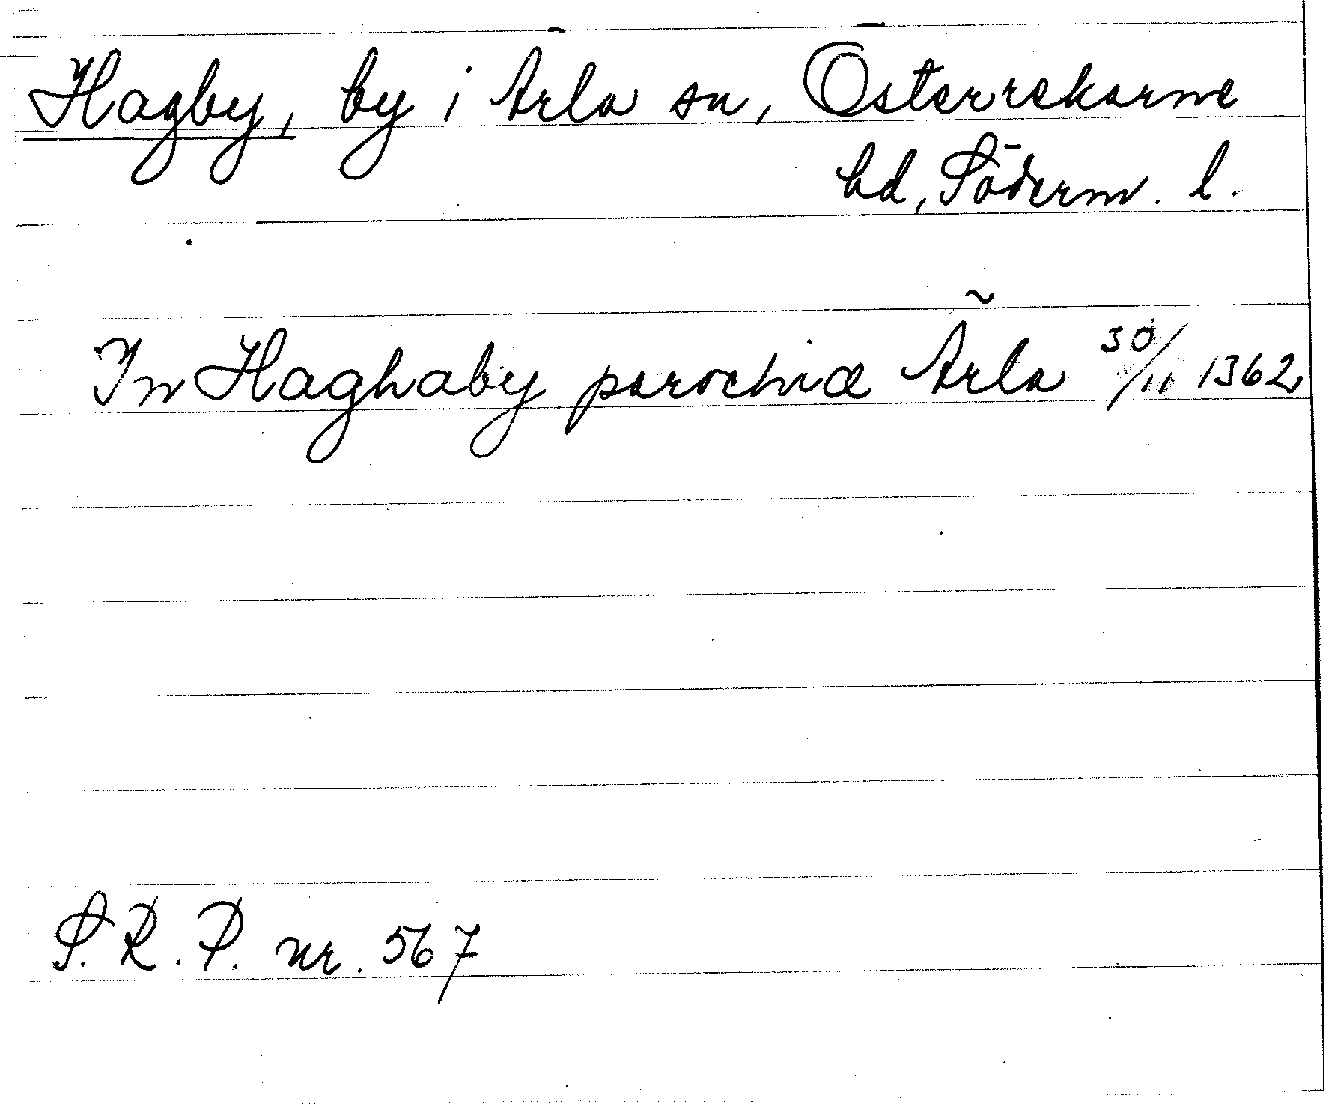 Hagby, by i Ärla sn, Österrekarne
hd, Söderm. l.
In Haghaby parochia Ärla 30/11 1362
S.R.P. nr. 567